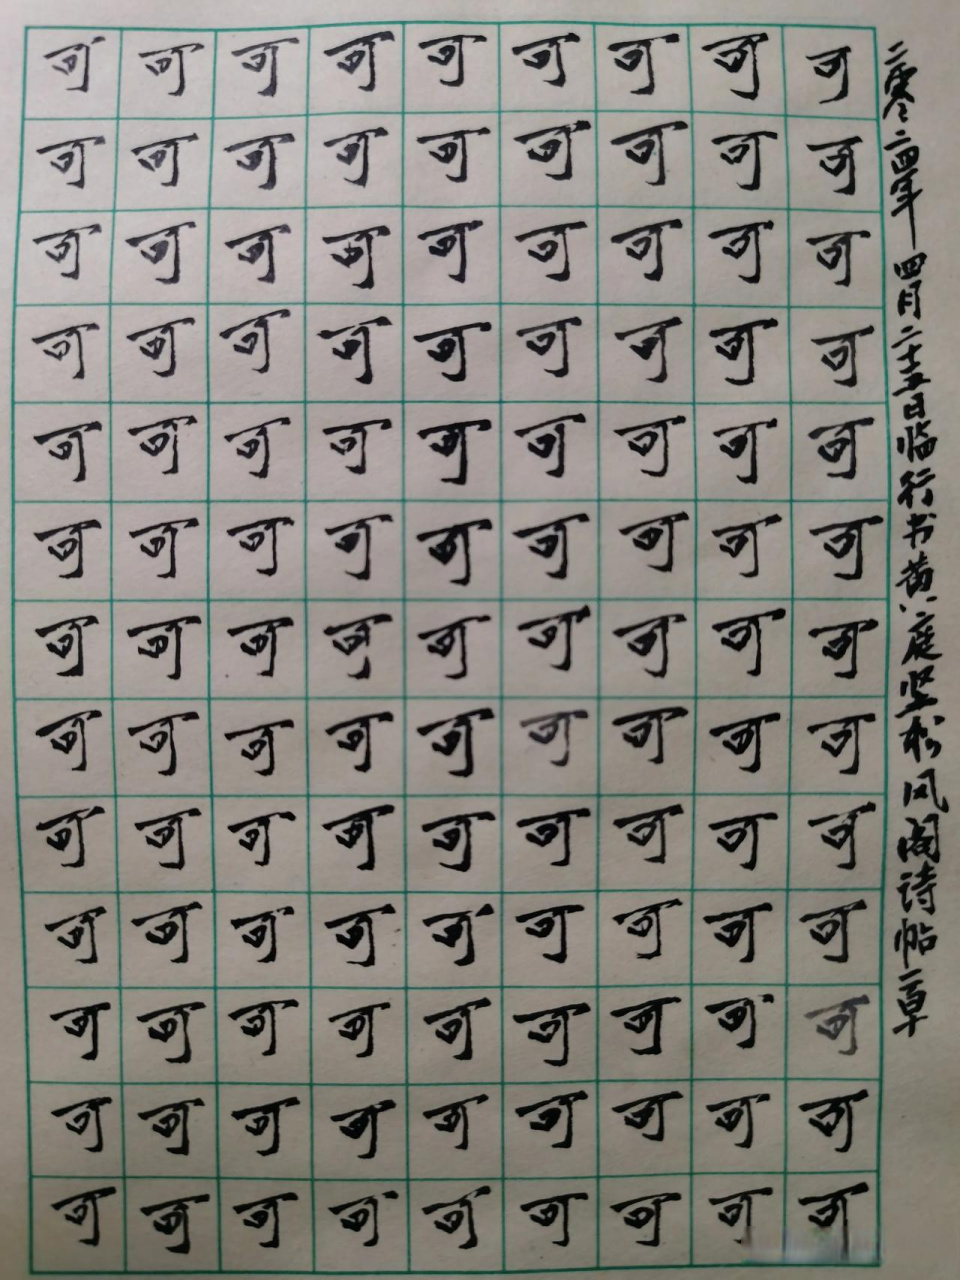 可可可可可可可可可
可可可可可可可可可
可可可可可可可可可
可可可可可可可可可
可可可可可可可可可
可可可可可可可可可
可可可可可可可可可
可可可可可可可可可
可可可可可可可可可
可可可可可可可可可
可可可可可可可可可
可可可可可可可可可
可可可可可可可可可
二零二四年四月二十五日临行书黄庭坚松风阁诗帖